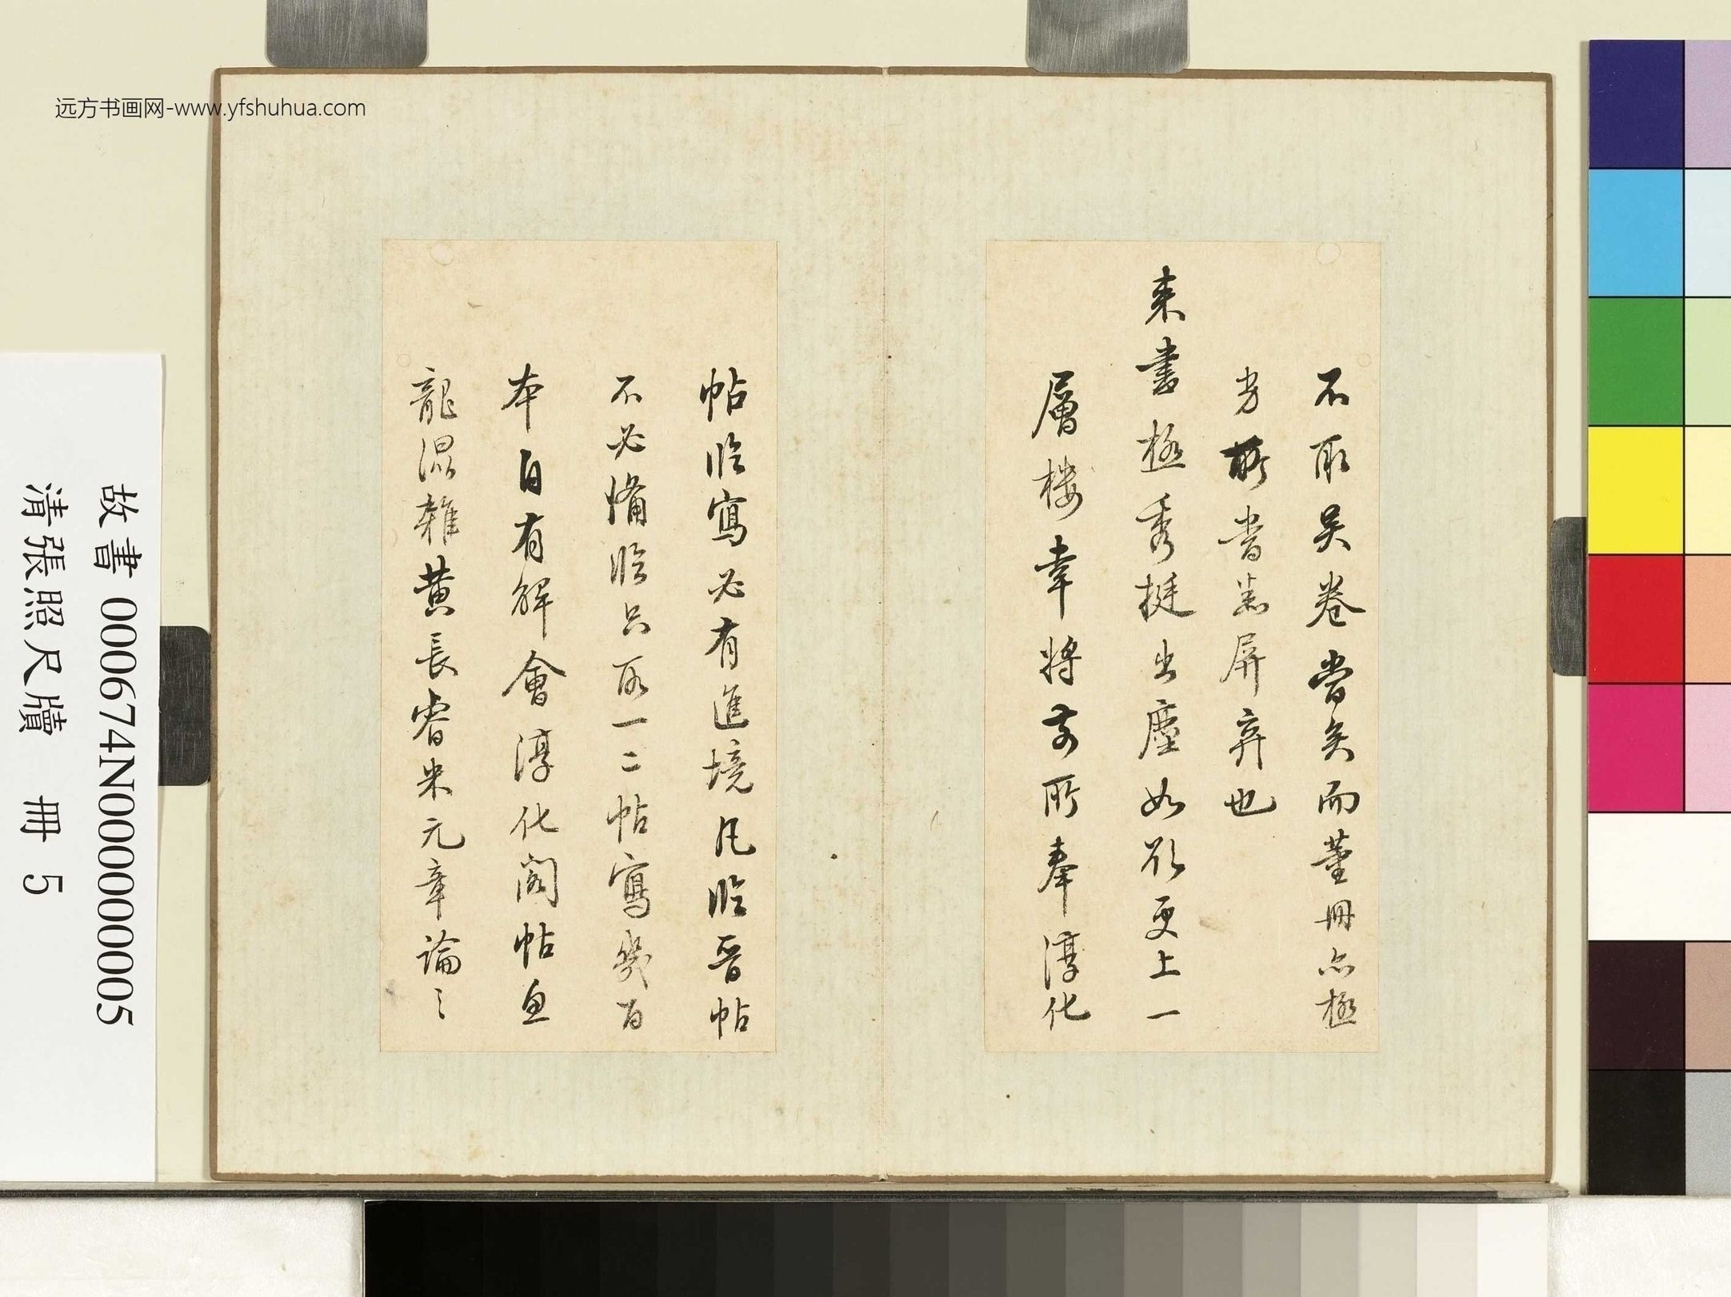 远方书画网-www.yfshuhua.com
不取吳卷當矣而董冊亦極
劣所當悉屏弃也
来書極秀挺出塵如欲更上一
層樓幸將前所奉淳化
帖臨寫必有進境凡臨晋帖
不必備臨只取一二帖寫幾百
本自有解會淳化閣帖魚
龍混雜黄長睿米元章論之
故書 000674N000000005
清張照尺牘 冊 5